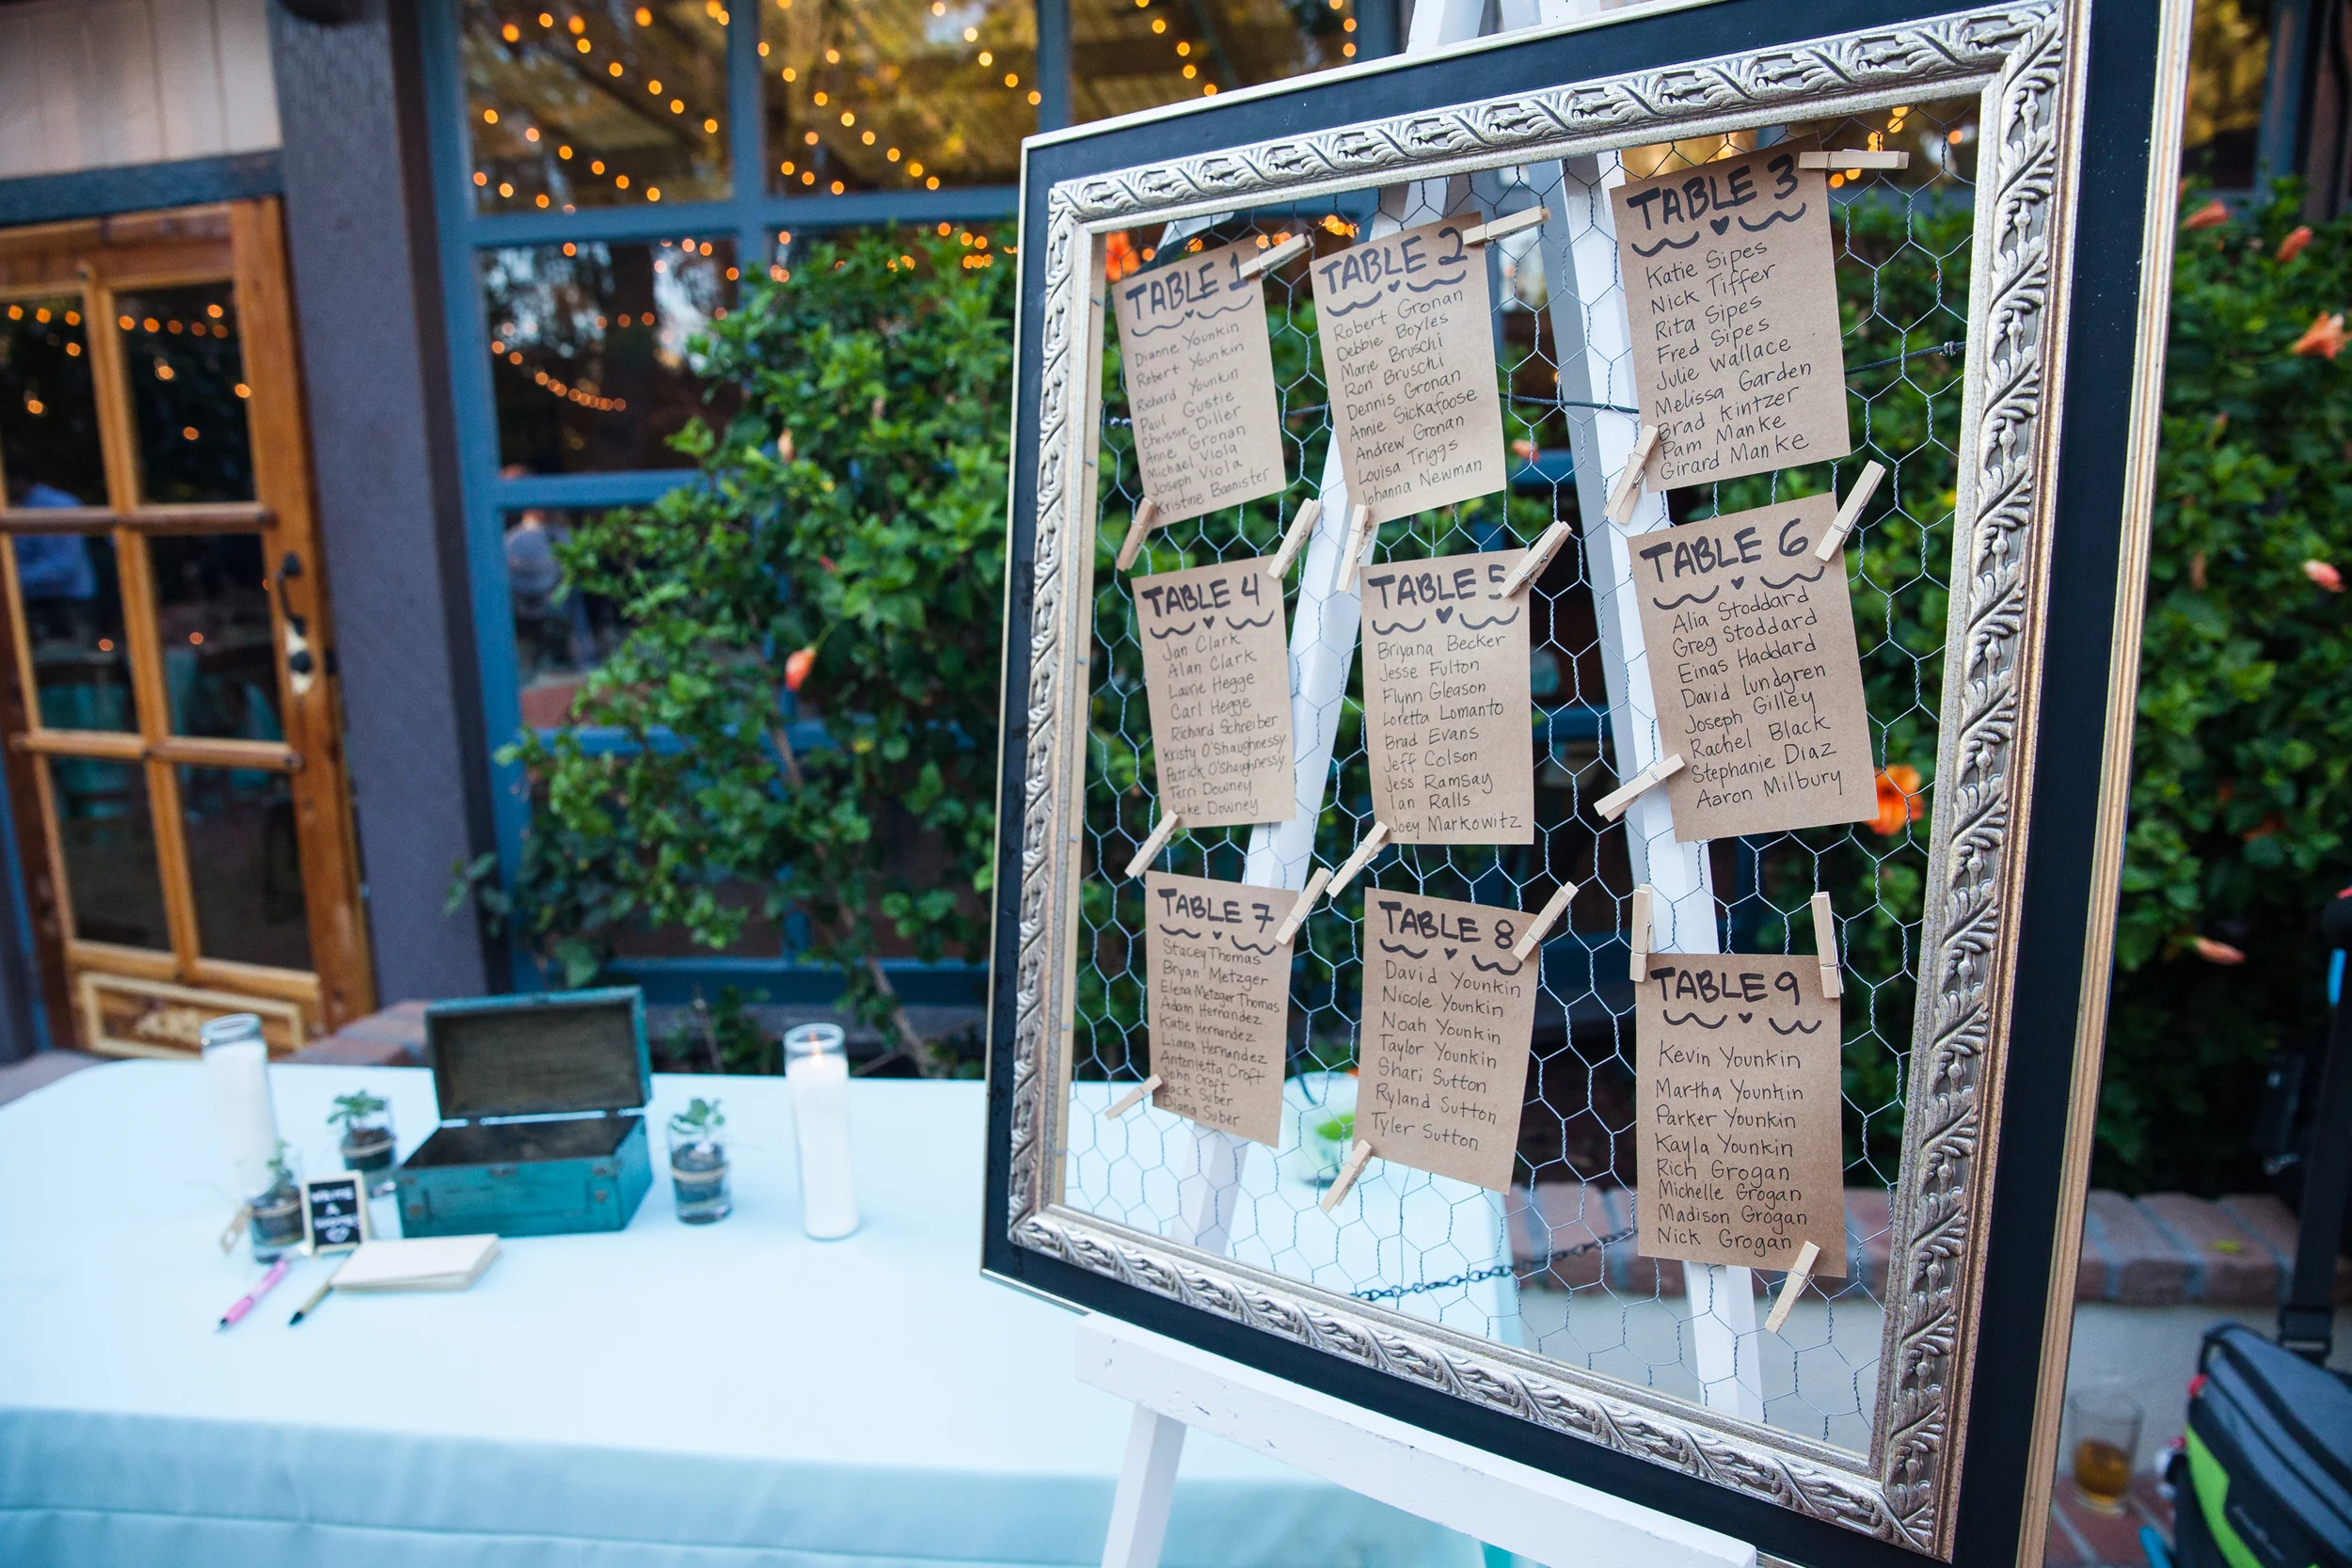 TABLE 1
Dianne Younkin
Robert Younkin
Richard Younkin
Paul Gustie
Chrissie Diller
Anne Gronan
Michael Viola
Joseph Viola
Kristine Bannister
TABLE 2
Robert Gronan
Debbie Boyles
Marie Bruschi
Ron Bruschi
Dennis Gronan
Annie Sickafoose
Andrew Gronan
Louisa Triggs
Johanna Newman
TABLE 3
Katie Sipes
Nick Tiffer
Rita Sipes
Fred Sipes
Julie Wallace
Melissa Garden
Brad Kintzer
Pam Manke
Girard Manke
TABLE 4
Jan Clark
Alan Clark
Laurie Hegge
Carl Hegge
Richard Schreiber
Kristy O'Shaughnessy
Patrick O'Shaughnessy
Terri Downey
Luke Downey
TABLE 5
Briyana Becker
Jesse Fulton
Flynn Gleason
Loretta Lomanto
Brad Evans
Jeff Colson
Jess Ramsay
Ian Ralls
Joey Markowitz
TABLE 6
Alia Stoddard
Greg Stoddard
Einas Haddard
David Lundgren
Joseph Gilley
Rachel Black
Stephanie Diaz
Aaron Milbury
TABLE 7
Stacey Thomas
Bryan Metzger
Elena Metzger Thomas
Adam Hernandez
Katie Hernandez
Liana Hernandez
Antonietta Croft
John Croft
Jack Suber
Diana Suber
TABLE 8
David Younkin
Nicole Younkin
Noah Younkin
Taylor Younkin
Shari Sutton
Ryland Sutton
Tyler Sutton
TABLE 9
Kevin Younkin
Martha Younkin
Parker Younkin
Kayla Younkin
Rich Grogan
Michelle Grogan
Madison Grogan
Nick Grogan